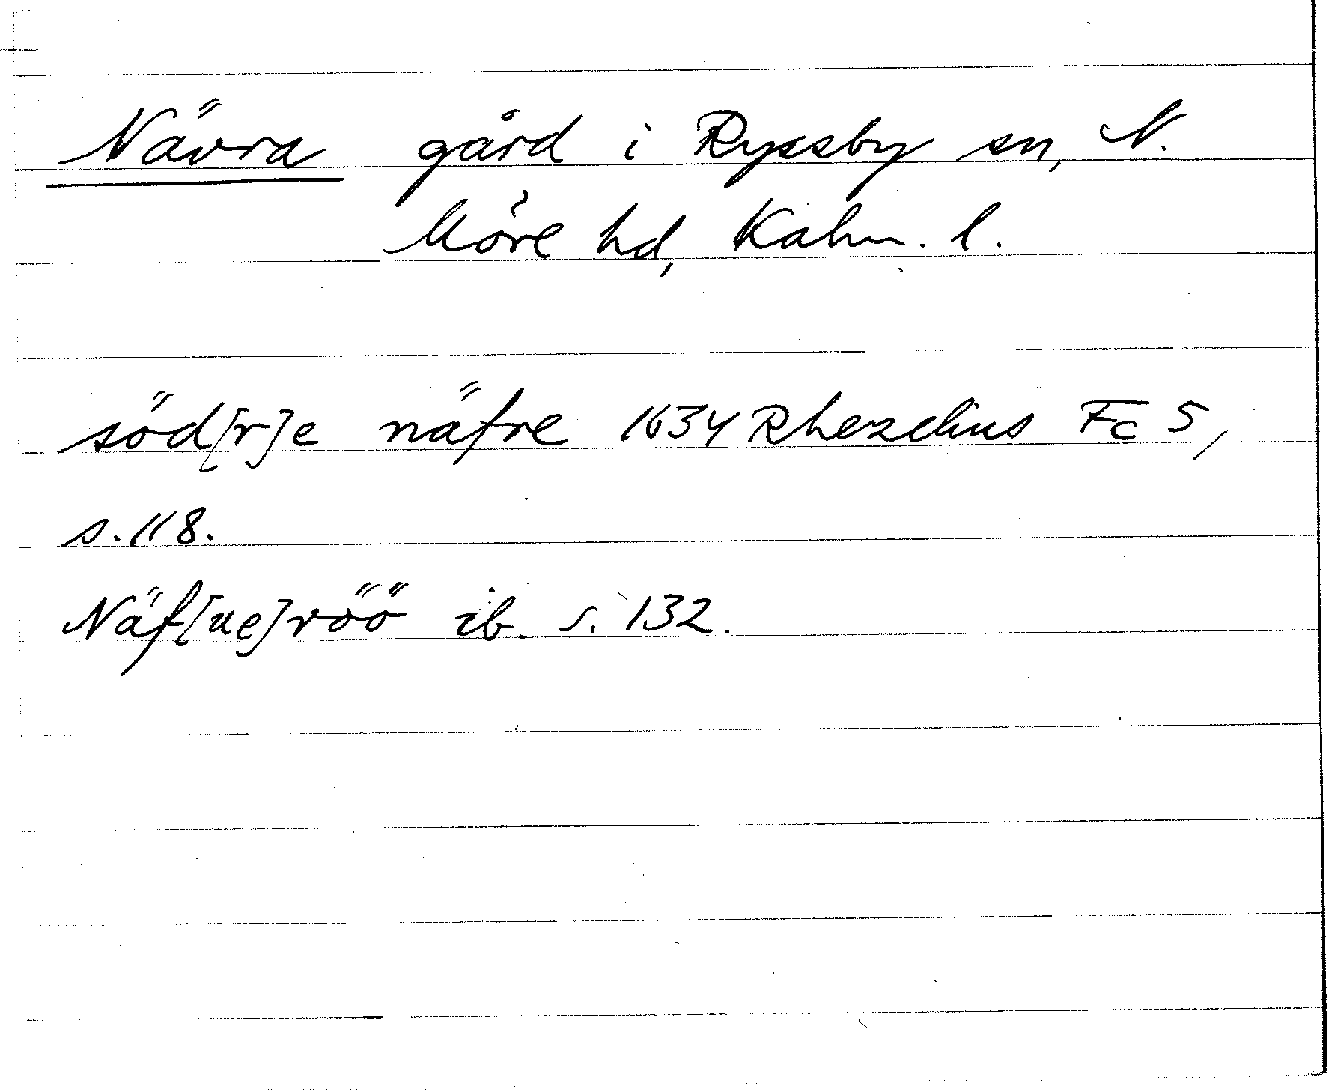 Nävra gård i Ryssby sn, N.
Möre hd, Kalm. l.
söd[r]e näfre 1634 Rhezelius Fc 5,
s. 118.
Näf[ue]röö ib. s. 132.